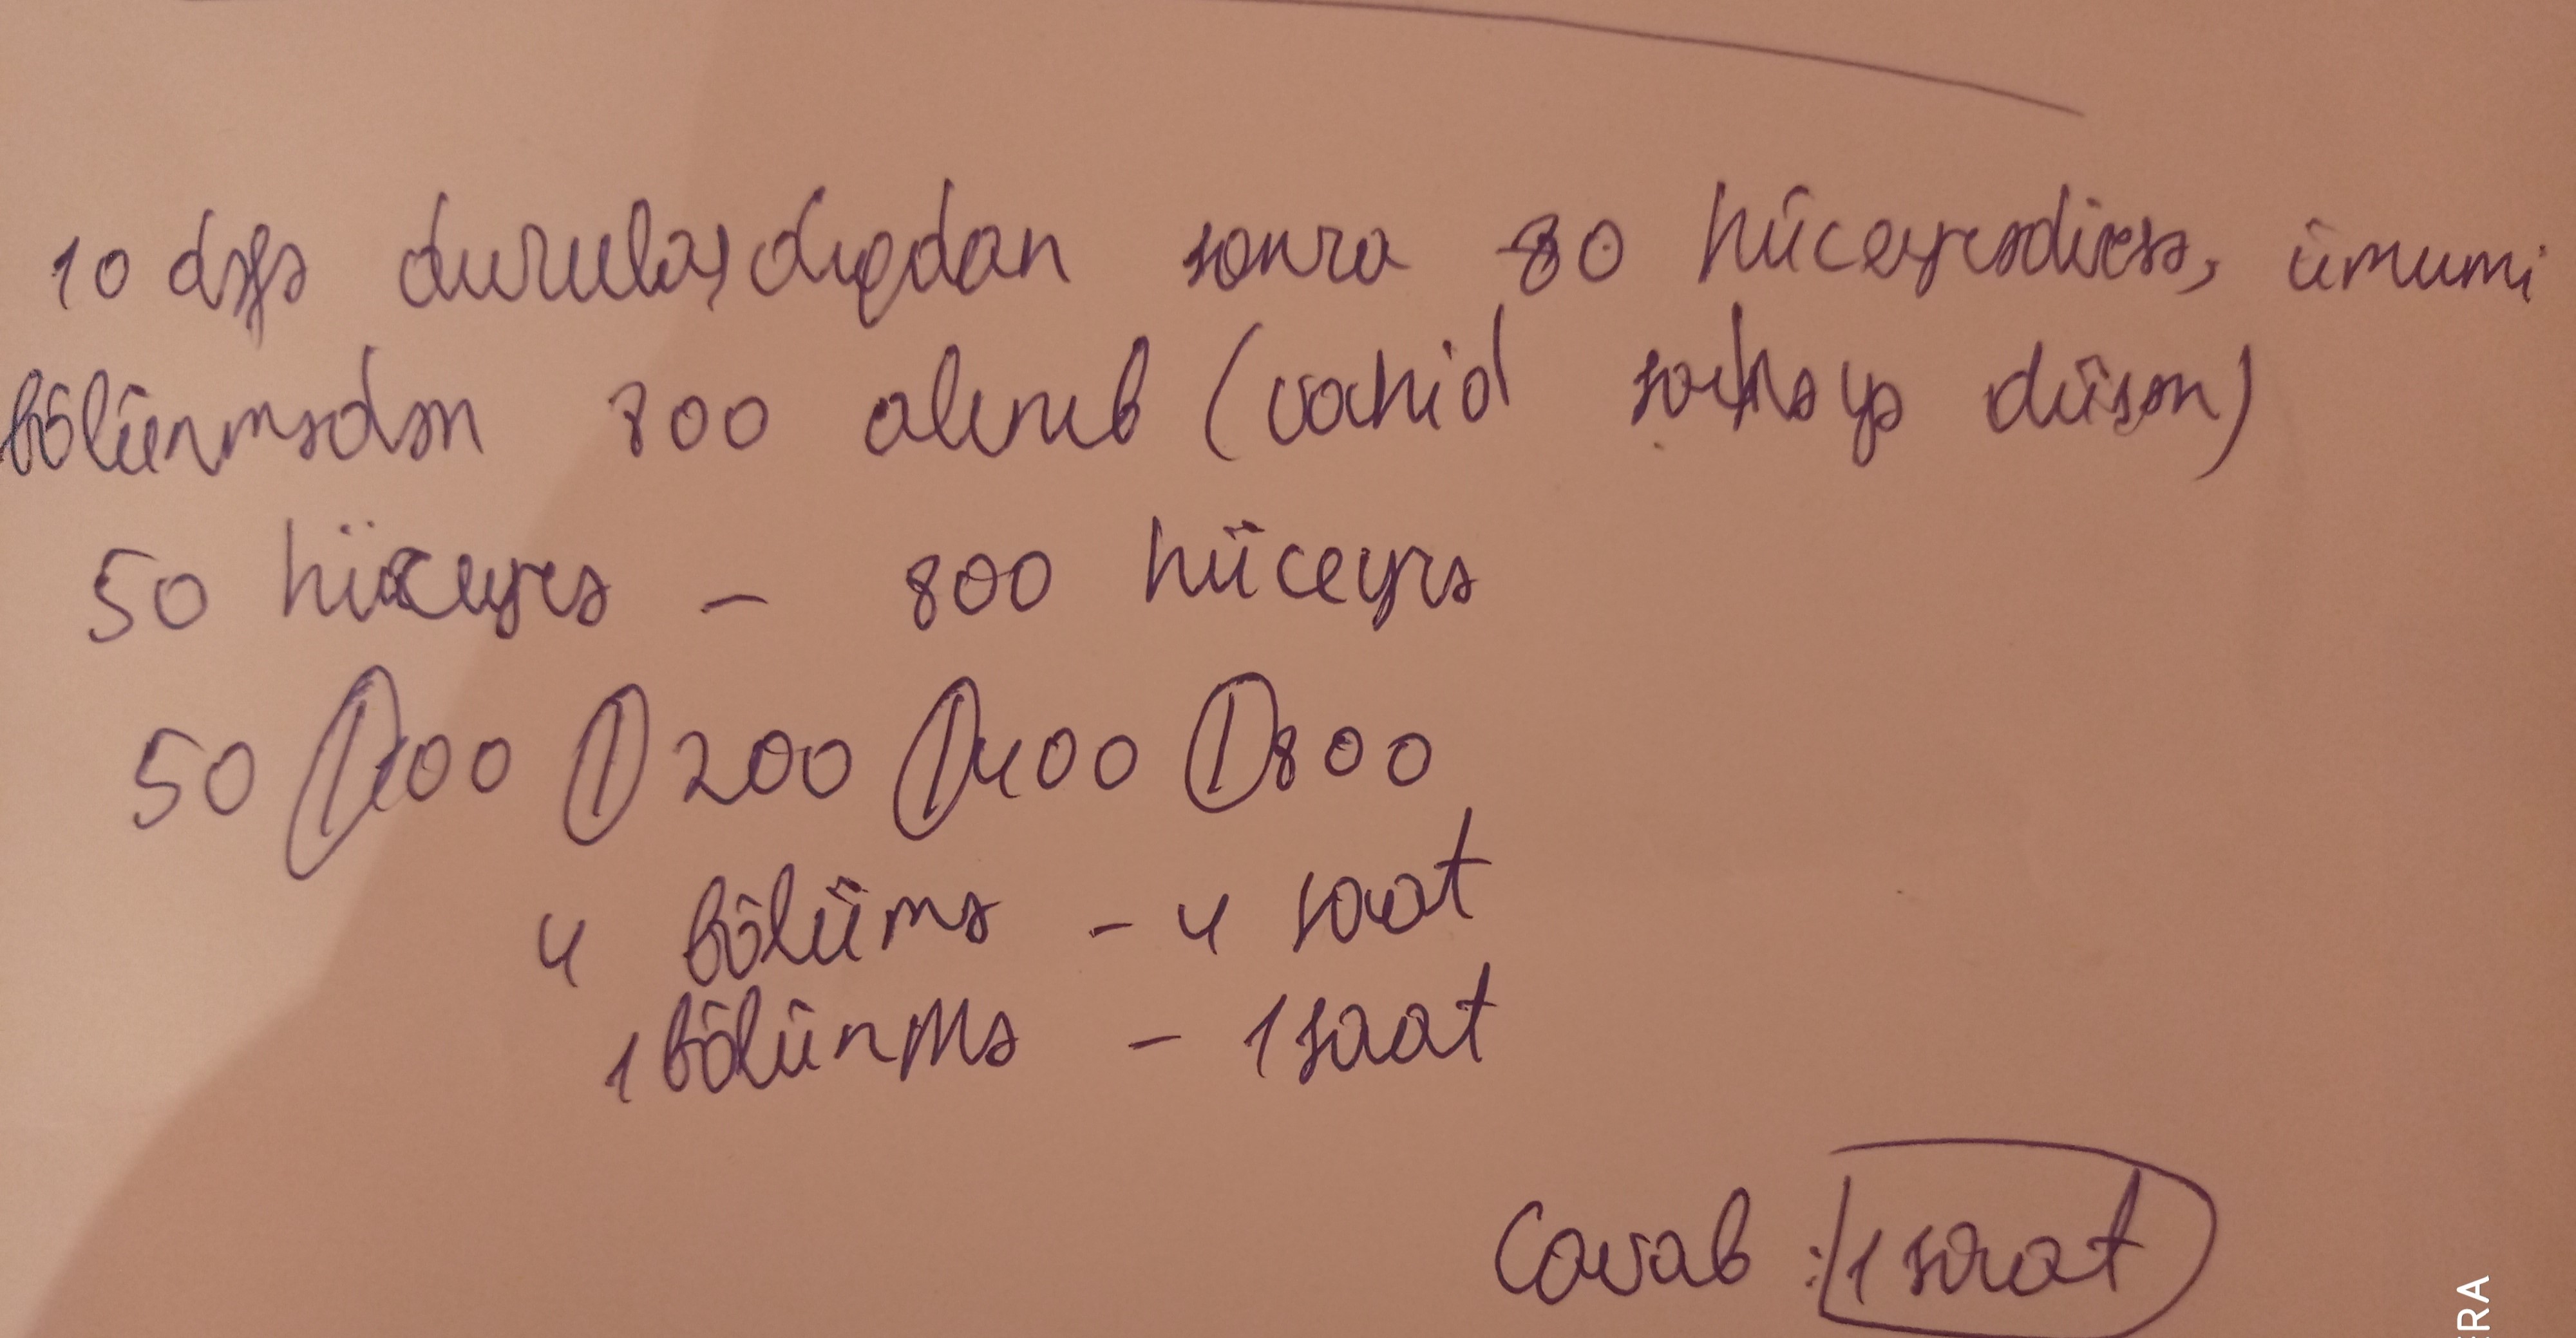 10 dəfə durulaşdıqdan sonra 80 hüceyrədirsə, ümumi
bölünmədən 800 alınıb (vahid sahəyə düşən)
50 hüceyrə - 800 hüceyrə
50 | 100 | 200 | 400 | 800
4 bölümə - 4 saat
1 bölünmə - 1 saat
Cavab : 1 saat
ERA